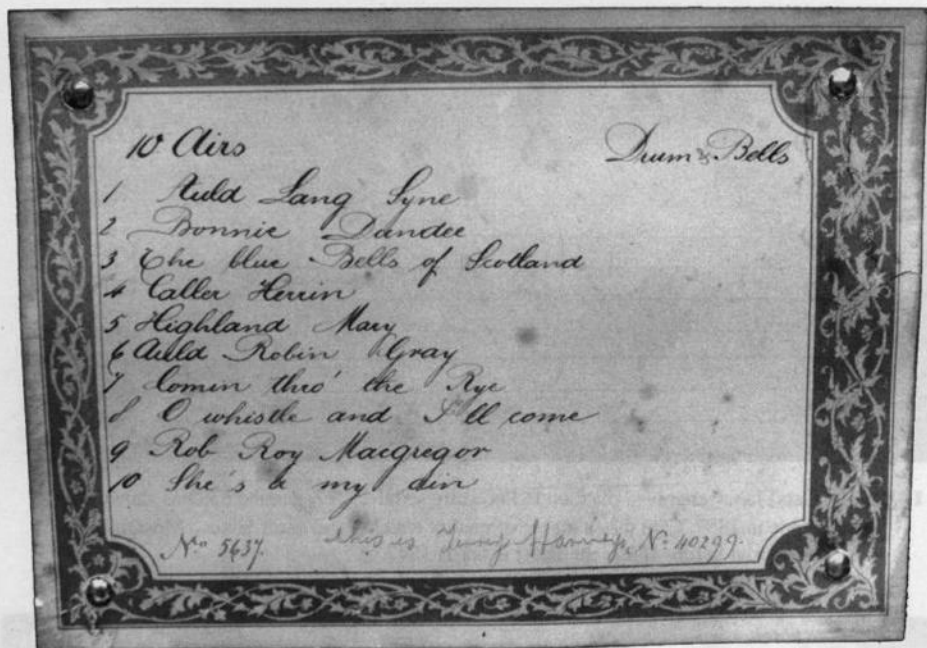 10 Airs Drum & Bells
1 Auld Lang Syne
2 Bonnie Dandee
3 The blue Bells of Scotland
4 Caller Herrin
5 Highland Mary
6 Auld Robin Gray
7 Comin thro' the Rye
8 O whistle and I'll come
9 Rob Roy Macgregor
10 She's a my ain
No 5637. this is No 40299.